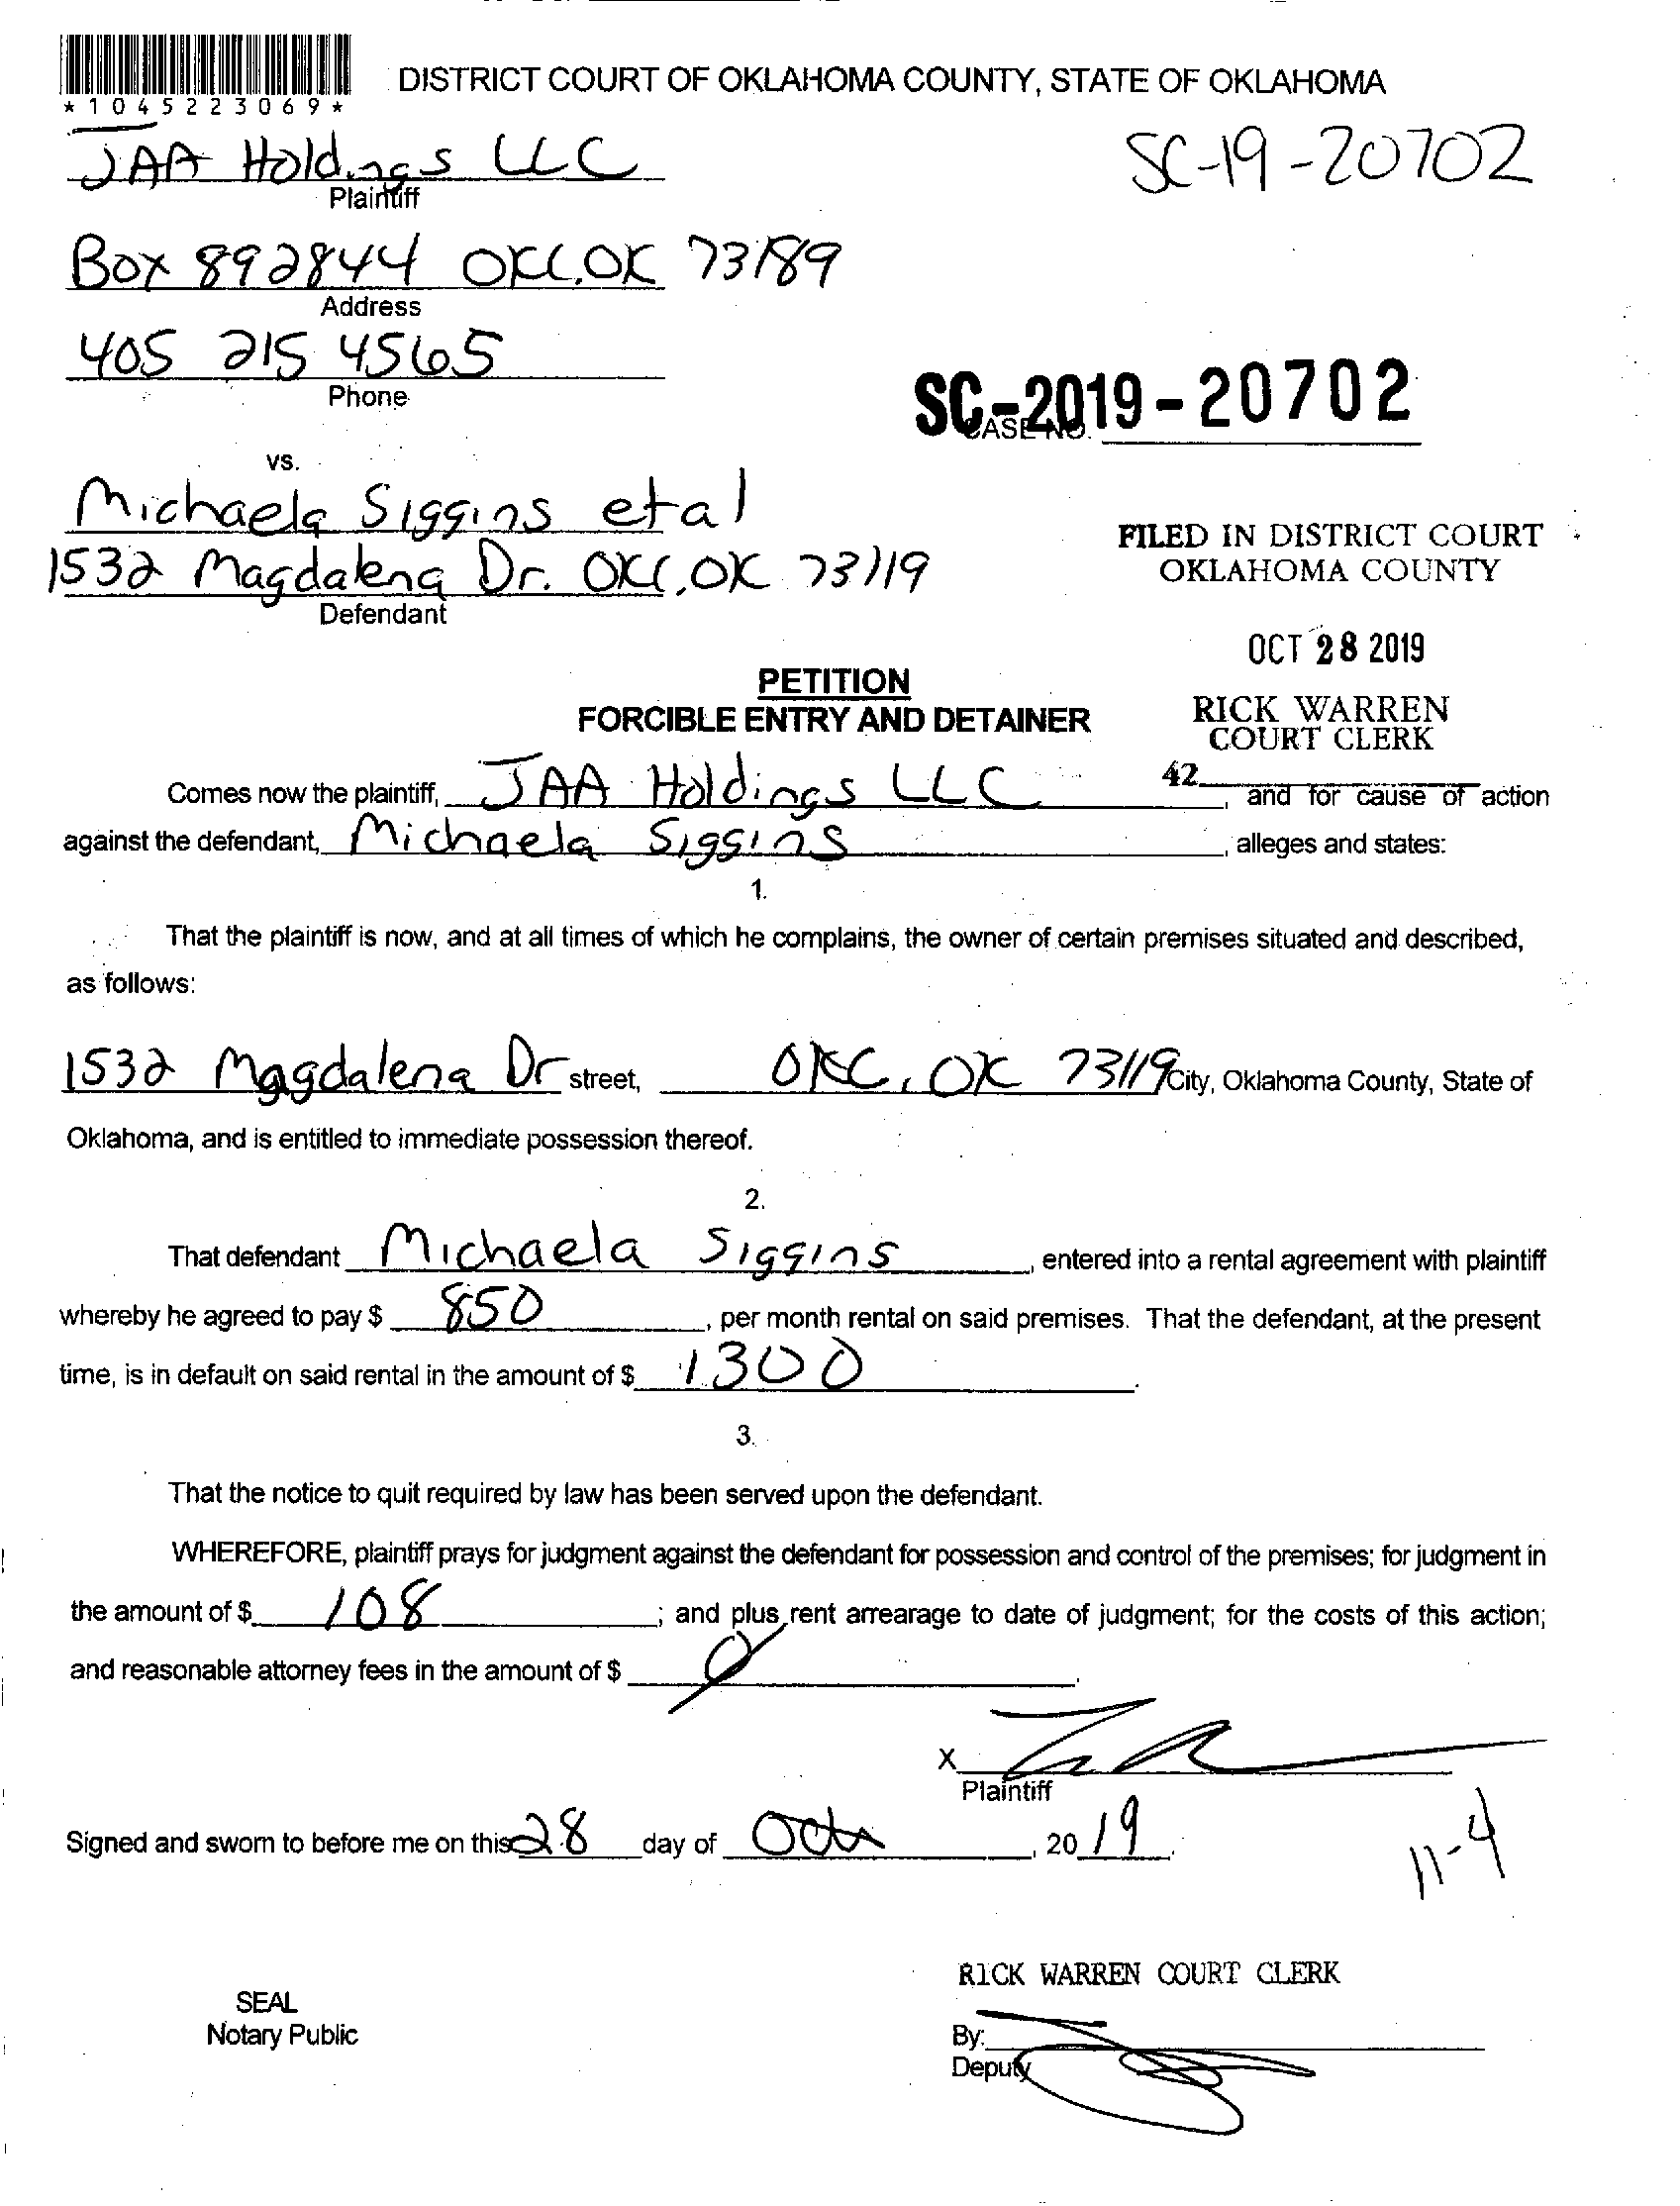 *1045223069*
DISTRICT COURT OF OKLAHOMA COUNTY, STATE OF OKLAHOMA
JAA Holdings LLC
Plaintiff
SC-19-20702
Box 892844 OKC, OK 73189
Address
405 215 4565
Phone
SC-2019-20702
CASE NO.
vs.
Michaela Siggins et al
1532 Magdalena Dr. OKC, OK 73119
Defendant
FILED IN DISTRICT COURT
OKLAHOMA COUNTY
OCT 28 2019
RICK WARREN
COURT CLERK
42
PETITION
FORCIBLE ENTRY AND DETAINER
Comes now the plaintiff, JAA Holdings LLC, and for cause of action
against the defendant, Michaela Siggins, alleges and states:
1.
That the plaintiff is now, and at all times of which he complains, the owner of certain premises situated and described,
as follows:
1532 Magdalena Dr street, OKC, OK 73119 City, Oklahoma County, State of
Oklahoma, and is entitled to immediate possession thereof.
2.
That defendant Michaela Siggins, entered into a rental agreement with plaintiff
whereby he agreed to pay $ 850, per month rental on said premises. That the defendant, at the present
time, is in default on said rental in the amount of $ 1300.
3.
That the notice to quit required by law has been served upon the defendant.
WHEREFORE, plaintiff prays for judgment against the defendant for possession and control of the premises; for judgment in
the amount of $ 108; and plus rent arrearage to date of judgment; for the costs of this action;
and reasonable attorney fees in the amount of $ 0.
X
Plaintiff
Signed and sworn to before me on this 28 day of Oct, 20 19.
11-4
RICK WARREN COURT CLERK
SEAL
Notary Public
By:
Deputy